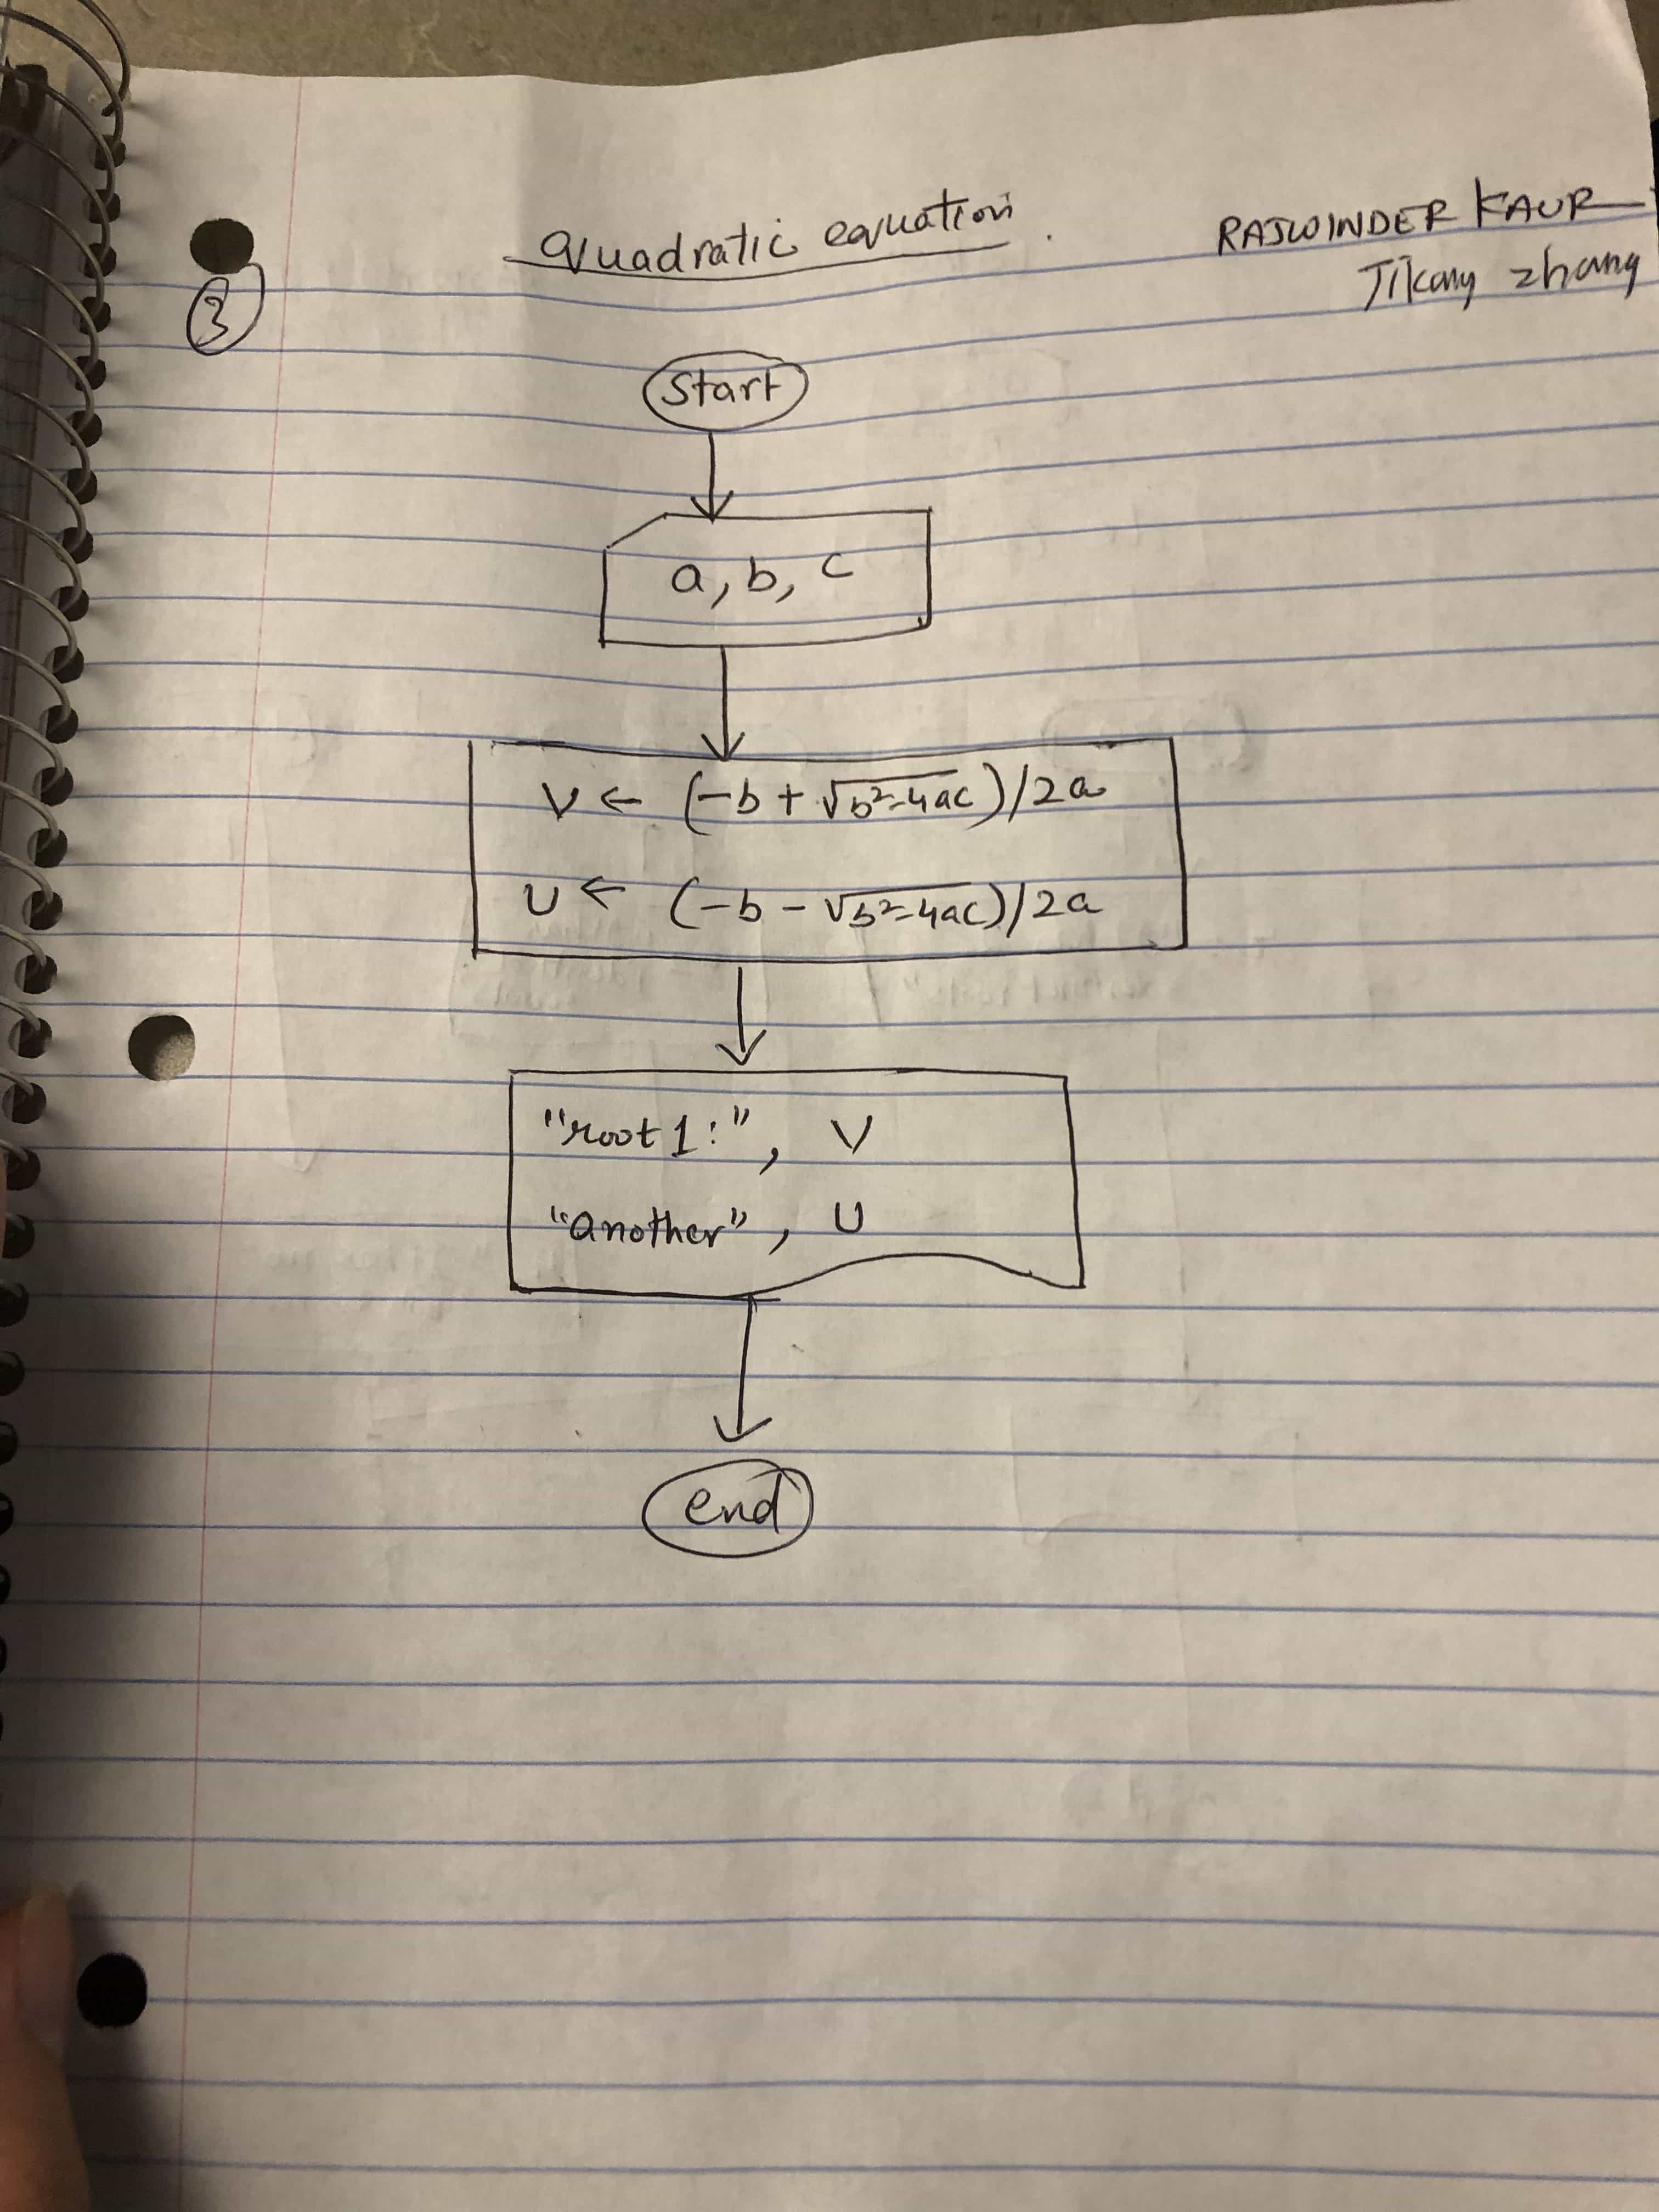 quadratic equation.
RAJWINDER KAUR
Jikang zhang
3
Start
a, b, c
V ← (-b + √b²-4ac)/2a
U ← (-b - √b²-4ac)/2a
"root 1:", V
"another", U
end